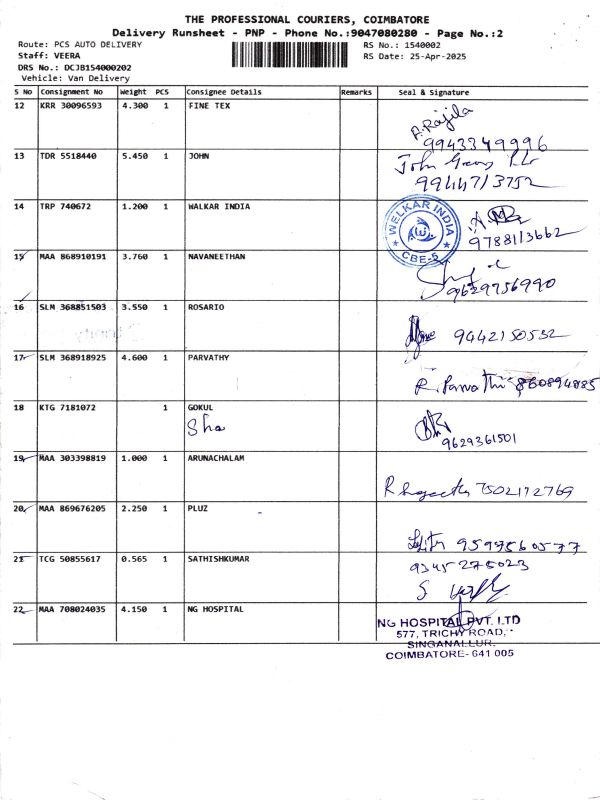 THE PROFESSIONAL COURIERS, COIMBATORE
Delivery Runsheet - PNP - Phone No.:9047080280 - Page No.:2
Route: PCS AUTO DELIVERY RS No.: 1540002
Staff: VEERA RS Date: 25-Apr-2025
DRS No.: DCJB154000202
Vehicle: Van Delivery
S No Consignment No Weight PCS Consignee Details Remarks Seal & Signature
12 KRR 30096593 4.300 1 FINE TEX
A. Rajila
9943349996
13 TDR 5518440 5.450 1 JOHN
John
9944713752
14 TRP 740672 1.200 1 WALKAR INDIA
WELKAR INDIA
CBE-5
9788113662
15 MAA 868910191 3.760 1 NAVANEETHAN
9629756990
16 SLM 368851503 3.550 1 ROSARIO
9442150532
17 SLM 368918925 4.600 1 PARVATHY
R. Parvathi 860894885
18 KTG 7181072 1 GOKUL
Sha
9629361501
19 MAA 303398819 1.000 1 ARUNACHALAM
7502172769
20 MAA 869676205 2.250 1 PLUZ
9597560577
21 TCG 50855617 0.565 1 SATHISHKUMAR
9345275023
22 MAA 708024035 4.150 1 NG HOSPITAL
NG HOSPITAL PVT. LTD
577, TRICHY ROAD,
SINGANALLUR,
COIMBATORE- 641 005